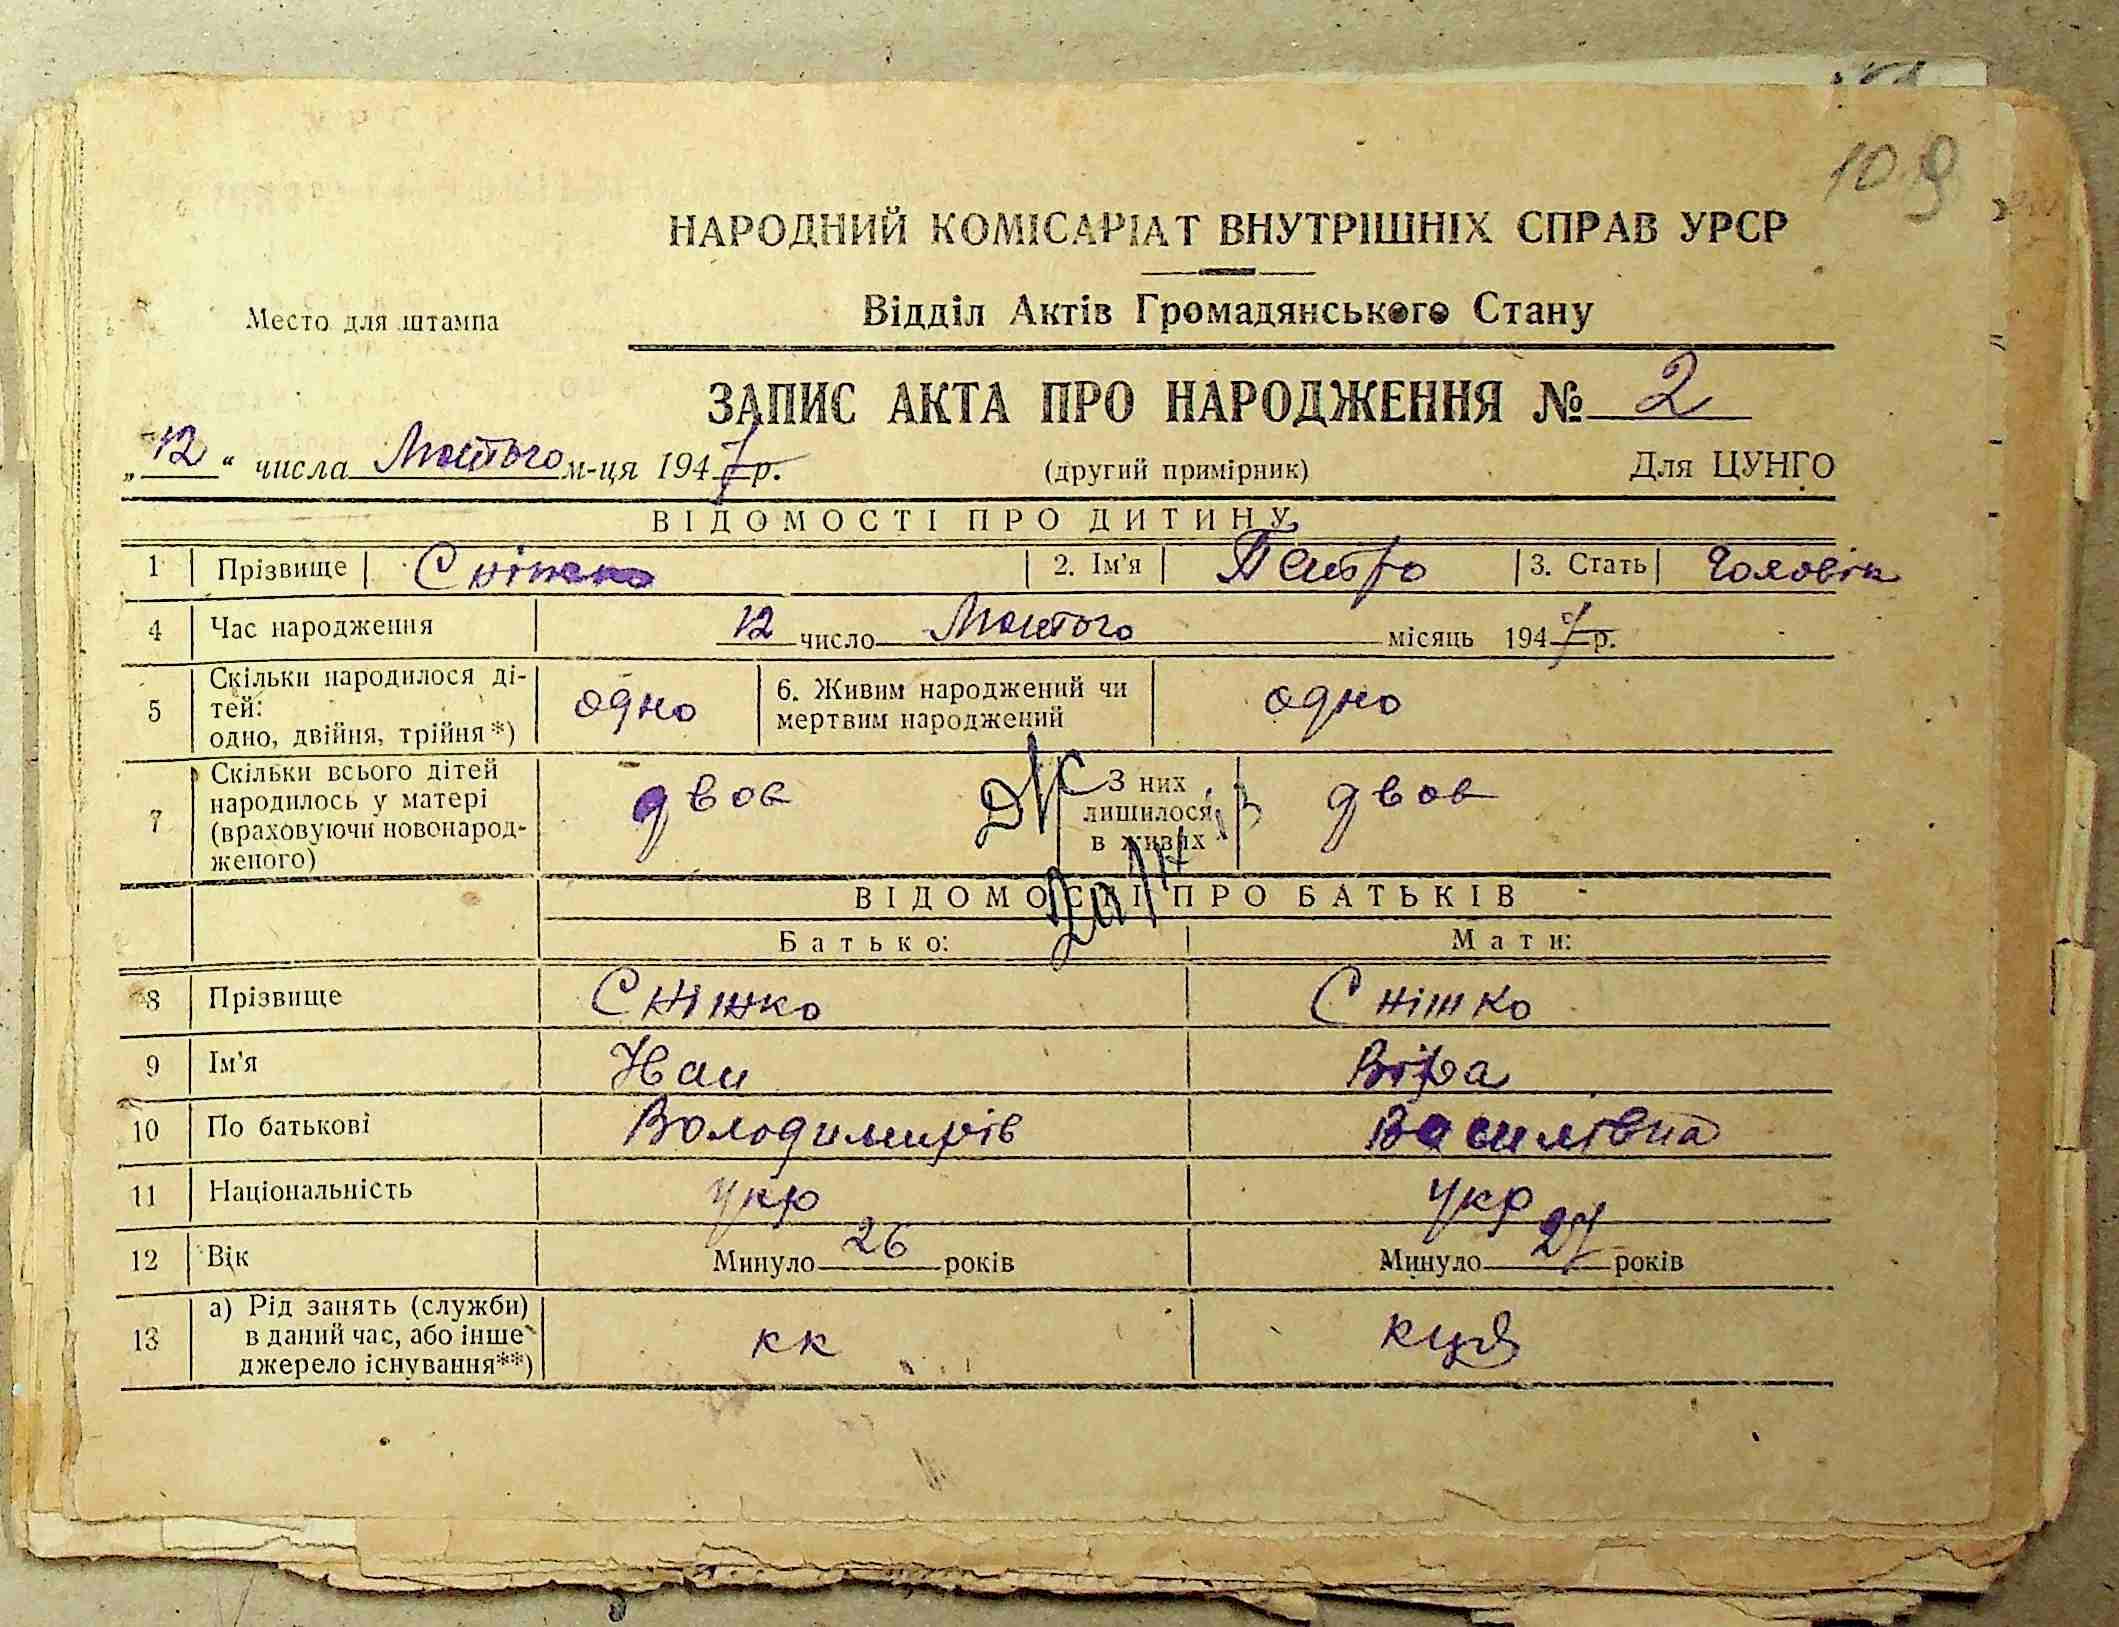 109
НАРОДНИЙ КОМІСАРІАТ ВНУТРІШНІХ СПРАВ УРСР
Место для штампа
Відділ Актів Громадянського Стану
ЗАПИС АКТА ПРО НАРОДЖЕННЯ № 2
„12“ числа Лютого м-ця 1947 р. (другий примірник) Для ЦУНГО
ВІДОМОСТІ ПРО ДИТИНУ
1 Прізвище Сніжко 2. Ім'я Петро 3. Стать Чоловік
4 Час народження 12 число Лютого місяць 1947 р.
5 Скільки народилося ді-
тей:
одно, двійня, трійня*) одно 6. Живим народжений чи
мертвим народжений одно
7 Скільки всього дітей
народилось у матері
(враховуючи новонарод-
женого) двоє З них
лишилося
в живих двоє
ВІДОМОСТІ ПРО БАТЬКІВ
Батько: Мати:
8 Прізвище Сніжко Сніжко
9 Ім'я Іван Віра
10 По батькові Володимирів Василівна
11 Національність укр укр
12 Вік Минуло 26 років Минуло 27 років
13 а) Рід занять (служби)
в даний час, або інше
джерело існування**) кк кця